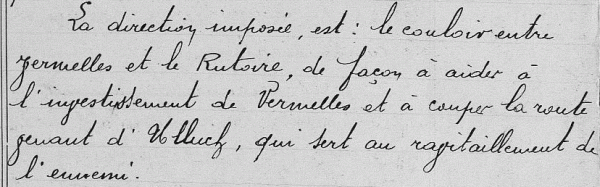 La direction imposée, est : le couloir entre
Vermelles et le Rutoire, de façon à aider à
l'investissement de Vermelles et à couper la route
venant d'Hulluch, qui sert au ravitaillement de
l'ennemi.